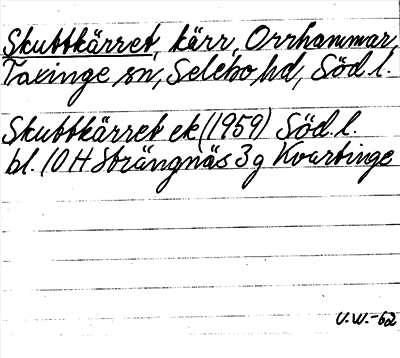 Skuttkärret, kärr, Orrhammar,
Taxinge sn, Selebo hd, Söd.l.
Skuttkärret ek (1959) Söd.l.
bl. 10 H Strängnäs 3 g Kvartinge
V.W.-62